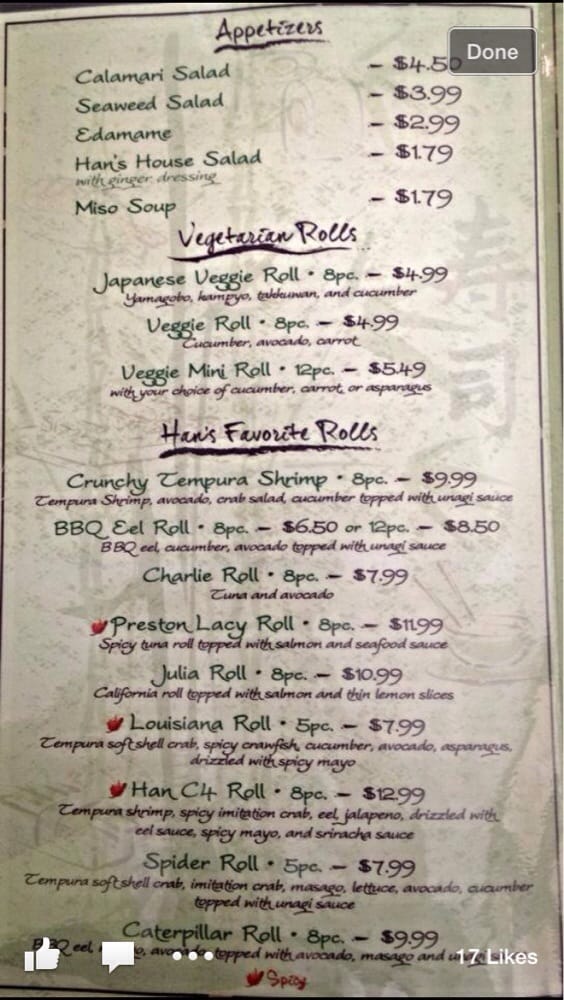 Appetizers
Done
Calamari Salad - $4.50
Seaweed Salad - $3.99
Edamame - $2.99
Han's House Salad - $1.79
with ginger dressing
Miso Soup - $1.79
Vegetarian Rolls
Japanese Veggie Roll • 8pc. - $4.99
Yamagobo, kampyo, takkuwan, and cucumber
Veggie Roll • 8pc. - $4.99
Cucumber, avocado, carrot
Veggie Mini Roll • 12pc. - $5.49
with your choice of cucumber, carrot, or asparagus
寿司
Han's Favorite Rolls
Crunchy Tempura Shrimp • 8pc. - $9.99
Tempura Shrimp, avocado, crab salad, cucumber topped with unagi sauce
BBQ Eel Roll • 8pc. - $6.50 or 12pc. - $8.50
BBQ eel, cucumber, avocado topped with unagi sauce
Charlie Roll • 8pc. - $7.99
Tuna and avocado
Preston Lacy Roll • 8pc. - $11.99
Spicy tuna roll topped with salmon and seafood sauce
Julia Roll • 8pc. - $10.99
California roll topped with salmon and thin lemon slices
Louisiana Roll • 5pc. - $7.99
Tempura softshell crab, spicy crawfish, cucumber, avocado, asparagus,
drizzled with spicy mayo
Han C4 Roll • 8pc. - $12.99
Tempura shrimp, spicy imitation crab, eel, jalapeno, drizzled with
eel sauce, spicy mayo, and sriracha sauce
Spider Roll • 5pc. - $7.99
Tempura softshell crab, imitation crab, masago, lettuce, avocado, cucumber
topped with unagi sauce
Caterpillar Roll • 8pc. - $9.99
BBQ eel, topped with avocado, masago and
17 Likes
Spicy